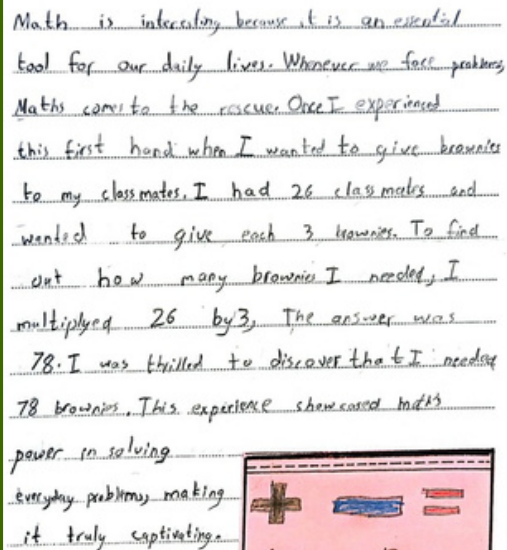 Math is interesting because it is an essential
tool for our daily lives. Whenever we face problems,
Maths comes to the rescue. Once I experienced
this first hand when I wanted to give brownies
to my classmates. I had 26 classmates and
wanted to give each 3 brownies. To find
out how many brownies I needed, I
multiplyed 26 by 3, The answer was
78. I was thrilled to discover that I needed
78 brownies. This experience showcased maths
power in solving
everyday problems, making
it truly captivating.
+ - =